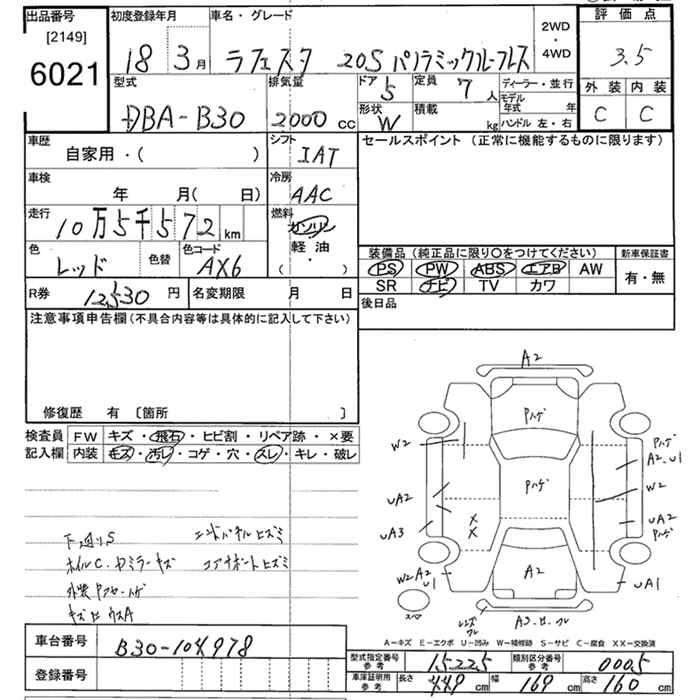 出品番号 初度登録年月 車名・グレード 2WD・4WD 評価点
[2149] 6021 18 3月 ラフェスタ 20S パノラミックルーフレス 3.5
型式 排気量 ドア 5 定員 7人 ディーラー・並行 外装 内装
DBA-B30 2000 cc 形状 W 積載 kg モデル年式 年 ハンドル 左・右 C C
車歴 自家用・( ) シフト IAT セールスポイント (正常に機能するものに限ります)
車検 年 月(日) 冷房 AAC
走行 10万5千572 km 燃料 ガソリン 軽油・( )
色 レッド 色替 色コード AX6
装備品 (純正品に限り〇をつけてください) 新車保証書
PS PW ABS エアB AW 有・無
SR ナビ TV カワ
R券 円 名変期限 月 日 後日品
注意事項申告欄(不具合内容等は具体的に記入して下さい)
修復歴 有 〔箇所 〕
検査員記入欄 FW キズ・飛石・ヒビ割・リペア跡・×要
内装 キズ・汚レ・コゲ・穴・スレ・キレ・破レ
A2
Pハゲ
W2 Pハゲ
A2.U1
Pハゲ W2
UA2 UA2
UA3 Pハゲ
X
X
W2 A2 A2 UA1
U1
スペア
下廻りS エンドパネルヒズミ
ホイルC.ドミラーキズ コアサポートヒズミ
A-キズ E-エクボ U-凹み W-補修跡 S-サビ C-腐食 XX-交換済
車台番号 B30-104978
登録番号
型式指定番号 参考 15225 類別区分番号 参考 0005
車庫証明用 参考 長さ 449 cm 幅 169 cm 高さ 160 cm